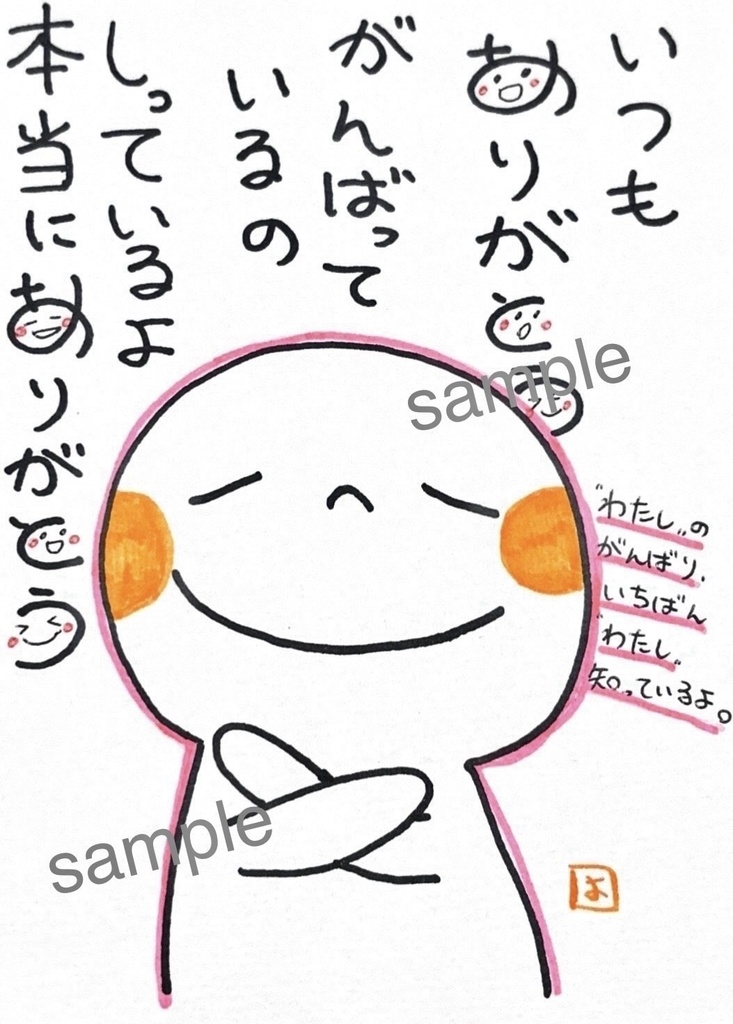 いつも
ありがとう
がんばって
いるの
しっているよ
本当にありがとう
"わたし"の
がんばり、
いちばん
"わたし"
知っているよ。
sample
sample
は